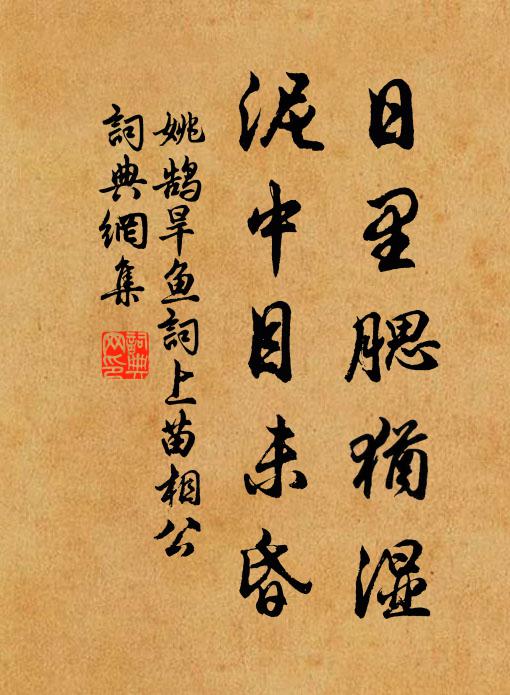 日里腮猶湿
泥中目未昏
姚鹄旱鱼詞上苗相公
詞典網集
詞典网印